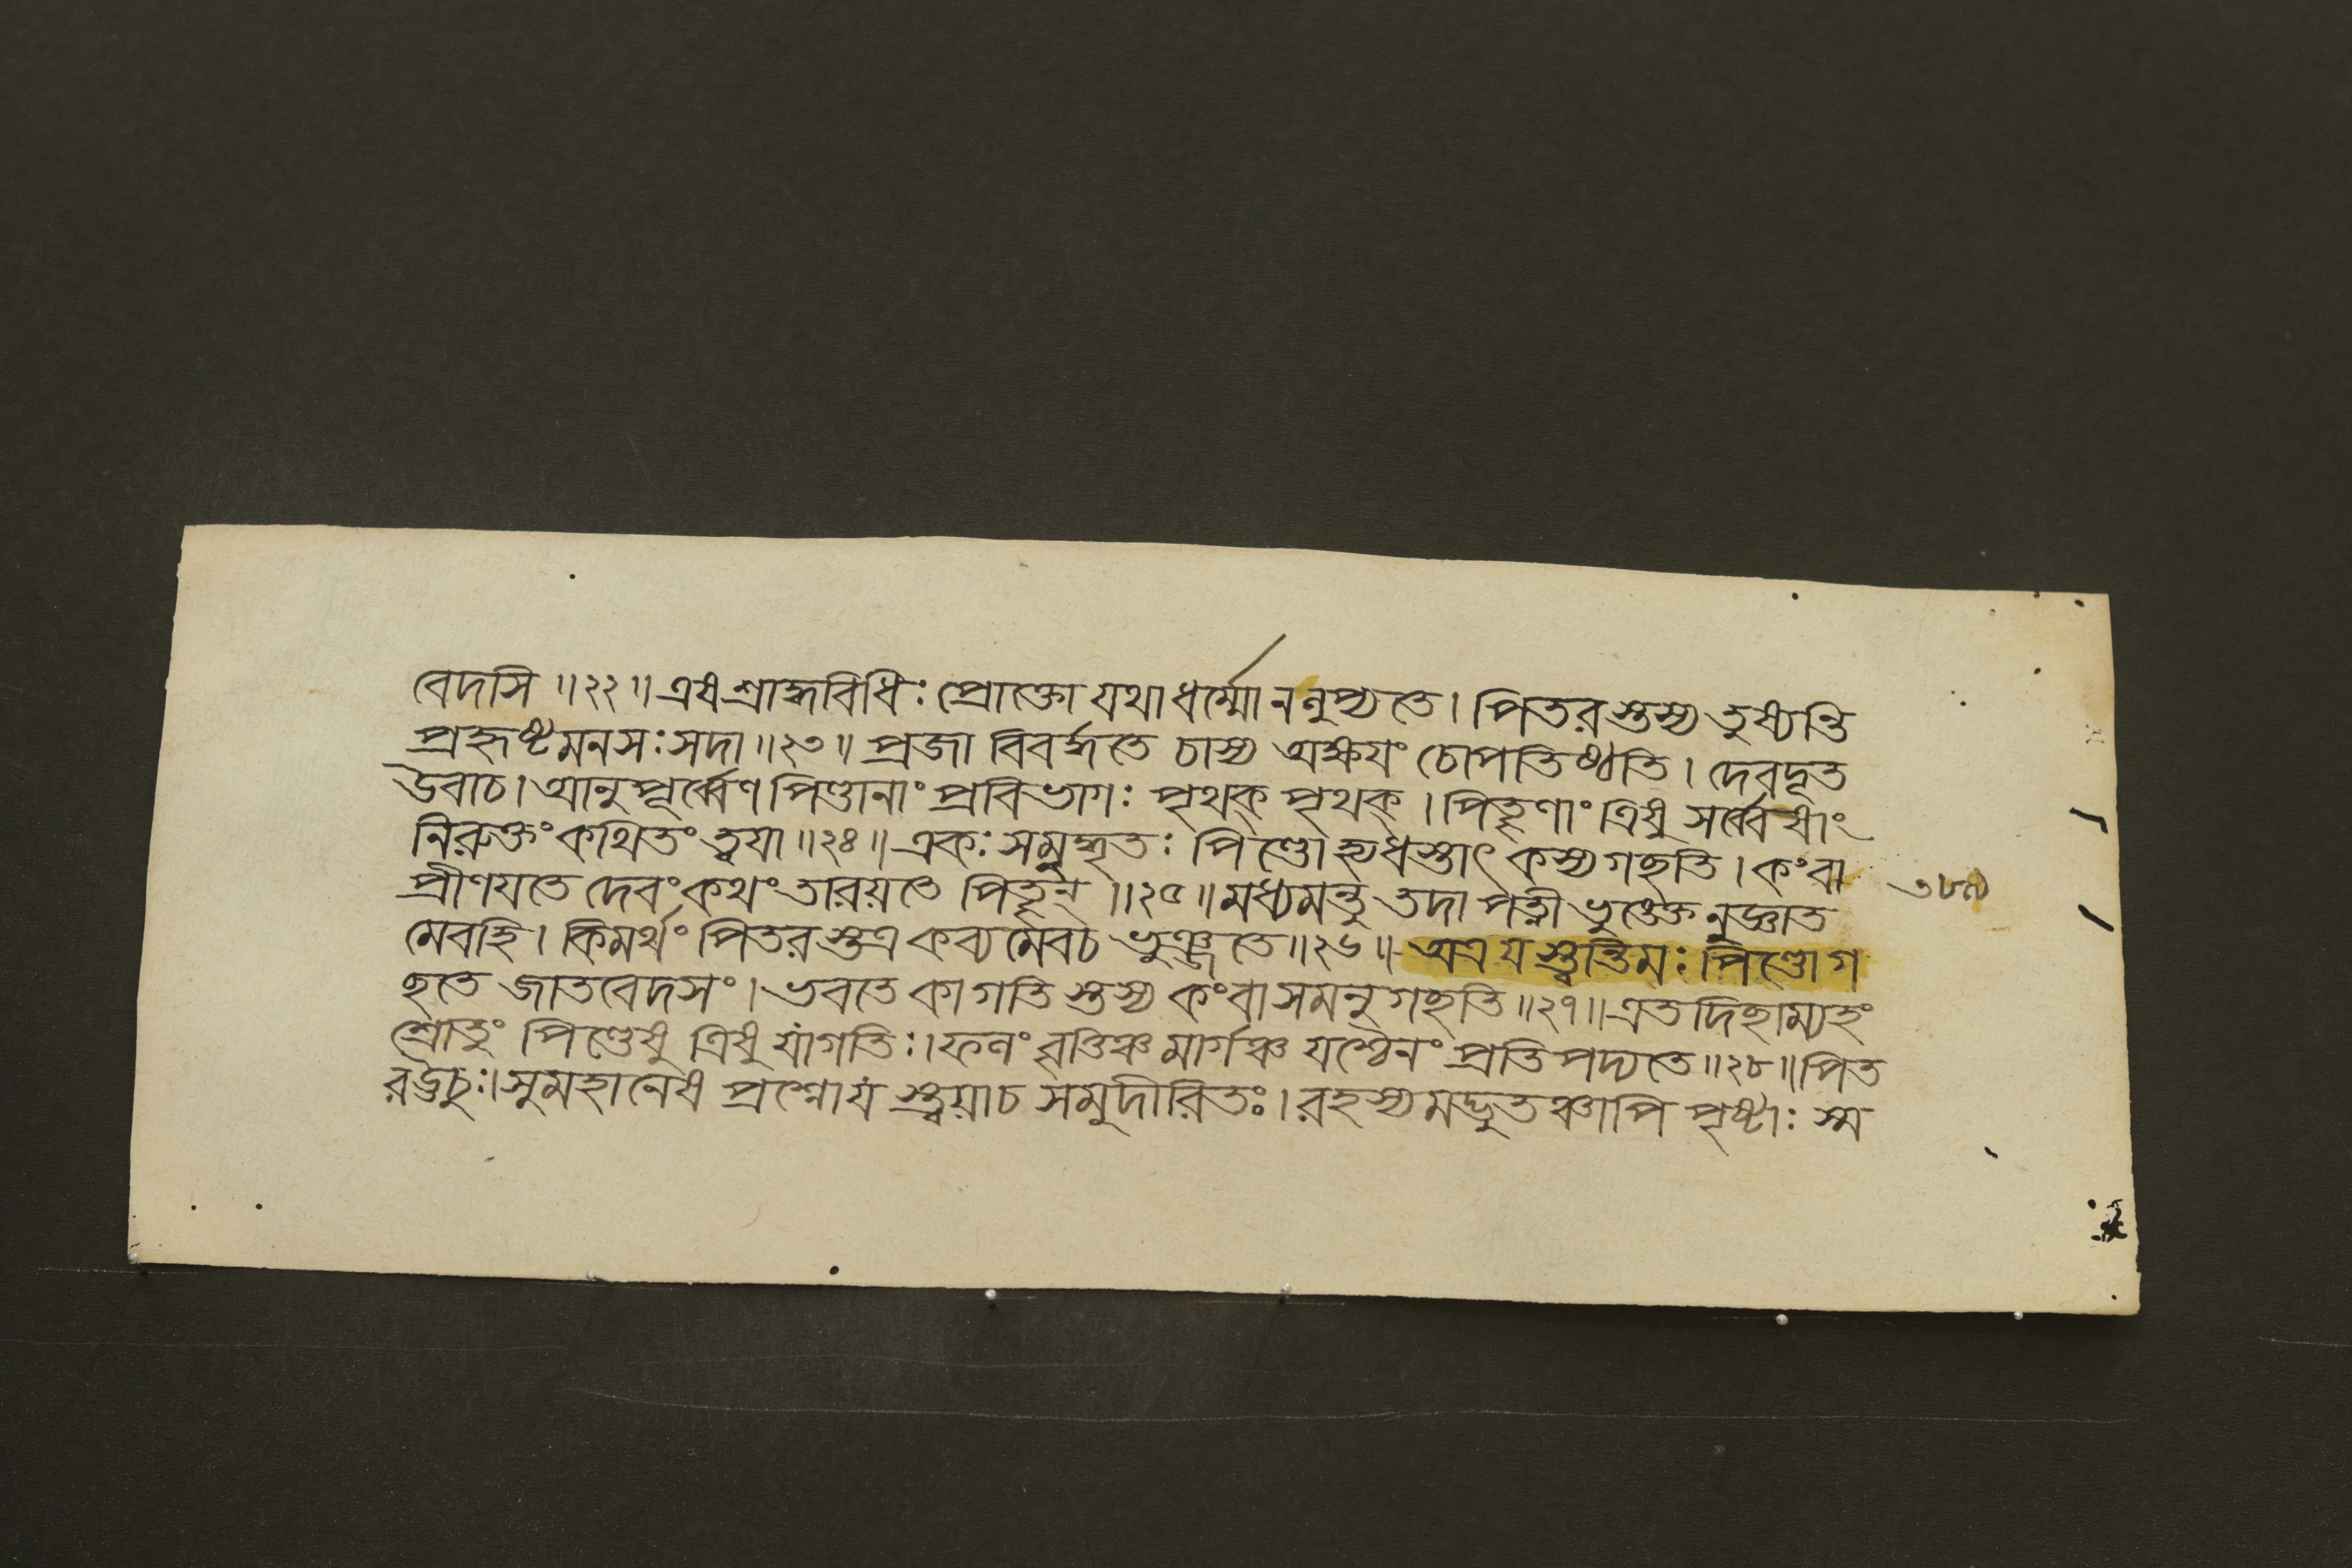 বেদসি ॥২২॥ এষ শ্রাদ্ধবিধিঃ প্রোক্তো যথা ধর্ম্মো ন লুপ্যতে। পিতরস্তস্য তুষ্যন্তি
প্রহৃষ্টমনসঃ সদা ॥২৩॥ প্রজা বিবর্দ্ধতে চাস্য অক্ষয়ং চোপতিষ্ঠতি। দেবদূত
উবাচ। আনুপূর্ব্বেণ পিণ্ডানাং প্রবিভাগঃ পৃথক্ পৃথক্। পিতৄণাং ত্রিষু সর্ব্বেষাং
নিরুক্তং কথিতং ত্বয়া ॥২৪॥ একঃ সমুদ্ধৃতঃ পিণ্ডো হ্যধস্তাৎ কস্য গছতি। কং বা
প্রীণয়তে দেবং কথং তারয়তে পিতৄন্ ॥২৫॥ মধ্যমন্তু তদা পত্নী ভুঙ্ক্তেনুজ্ঞাত
মেবহি। কিমর্থং পিতরস্তত্র কব্যমেব চ ভুঞ্জতে ॥২৬॥ অত্র যস্ত্বন্তিমঃ পিণ্ডো গ
ছতে জাতবেদসং। ভবতে কা গতিস্তস্য কং বা সমনুগছতি ॥২৭॥ এতদিছাম্যহং
শ্রোতুং পিণ্ডেষু ত্রিষু যা গতিঃ। ফলং বৃত্তিঞ্চ মার্গঞ্চ যশ্চৈনং প্রতিপদ্যতে ॥২৮॥ পিত
র ঊচুঃ। সুমহানেষ প্রশ্নো যস্ত্বয়া চ সমুদীরিতঃ। রহস্যমদ্ভুতঞ্চাপি পৃষ্টাঃ স্ম
৩৮৯